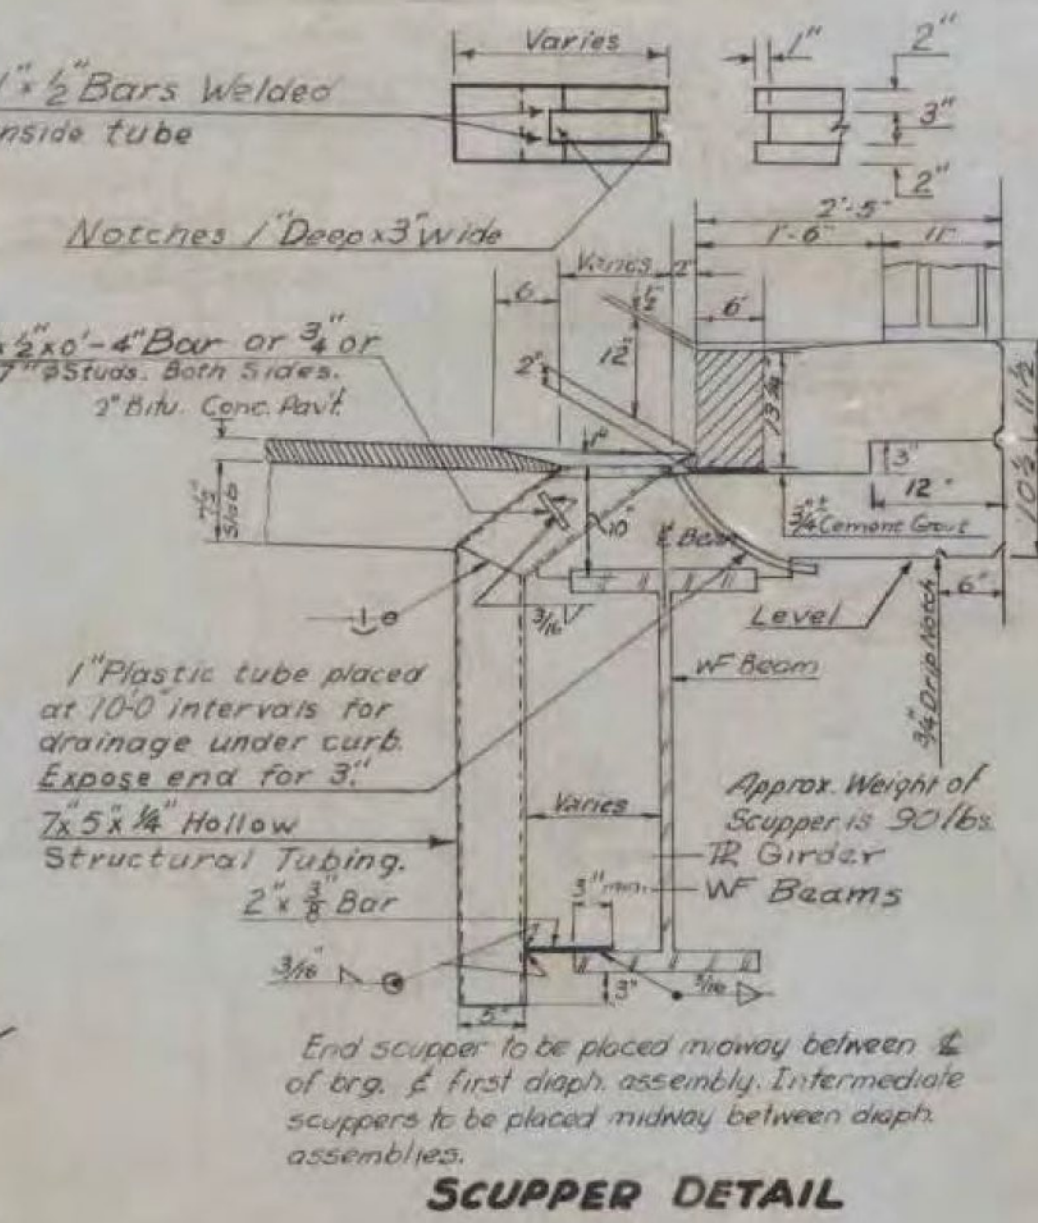 Varies
1"
2"
1" x ½" Bars Welded
inside tube
3"
2"
Notches 1" Deep x 3" wide
2'-5"
1'-6" 11"
Varies 2"
6
½"
6"
x ½" x 0'-4" Bar or ¾" or
7" ø Studs. Both Sides.
2" Bitu. Conc. Pav't.
2"
12"
13¾
11½
1"
3"
12"
7½"
Slab
10"
¾"± Cement Grout
10½
℄ Beam
3/16
Level
6"
¾" Drip Notch
WF Beam
1" Plastic tube placed
at 10'-0" intervals for
drainage under curb.
Expose end for 3".
7" x 5" x ¼" Hollow
Structural Tubing.
Varies
Approx. Weight of
Scupper is 90 lbs.
PL Girder
WF Beams
2" x ⅜" Bar
3" min.
3/16"
3"
5/16
5"
End scupper to be placed midway between ℄
of brg. & first diaph. assembly. Intermediate
scuppers to be placed midway between diaph.
assemblies.
SCUPPER DETAIL